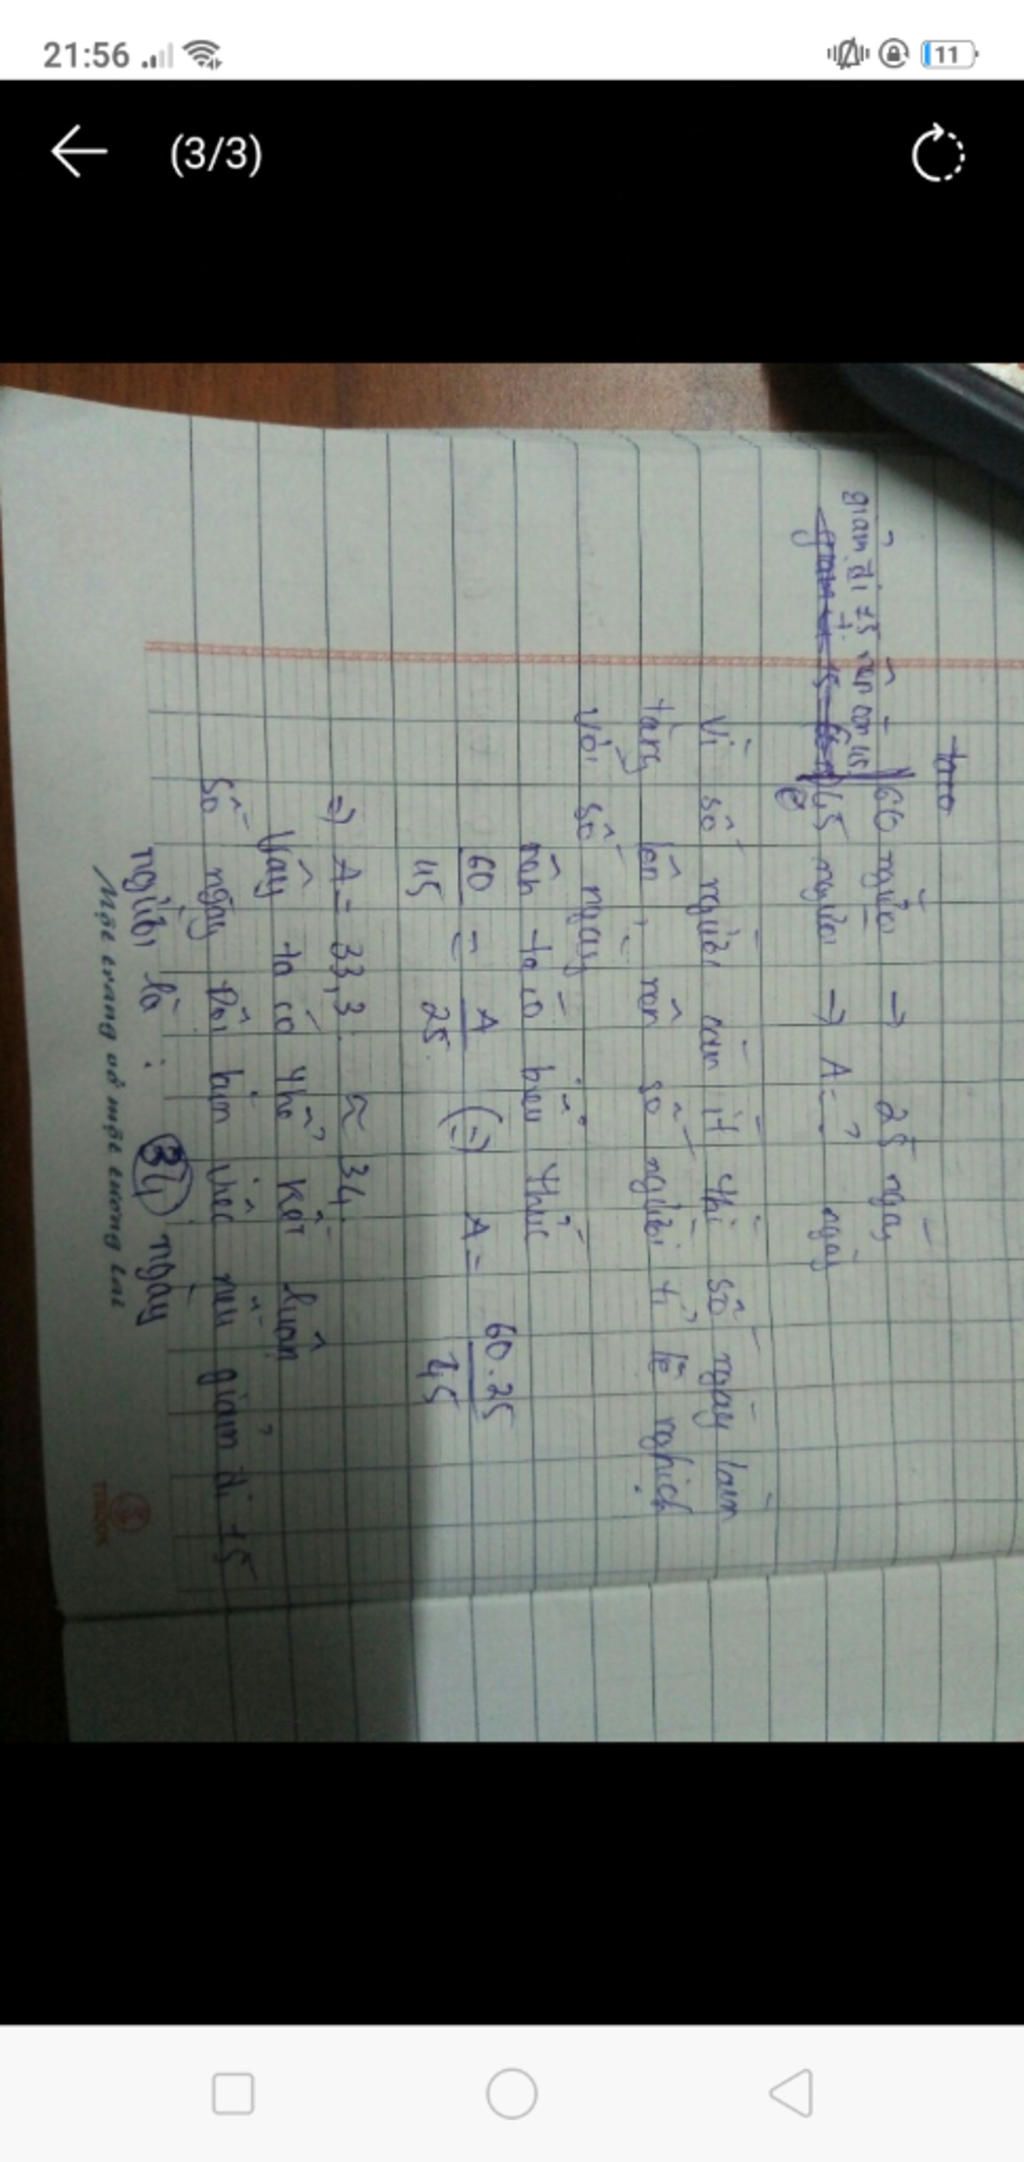 21:56
11
(3/3)
60 người → 25 ngày
giảm đi 15 nên còn 45
45 người → A = ? ngày
Vì số người càng ít thì số ngày làm
tăng lên, nên số người tỉ lệ nghịch
với số ngày
nên ta có biểu thức
60/45 = A/25 (=) A = 60.25/45
=) A = 33,3 ≈ 34.
Vậy ta có thể kết luận
Số ngày đội làm việc nếu giảm đi 15
người là : 34 ngày